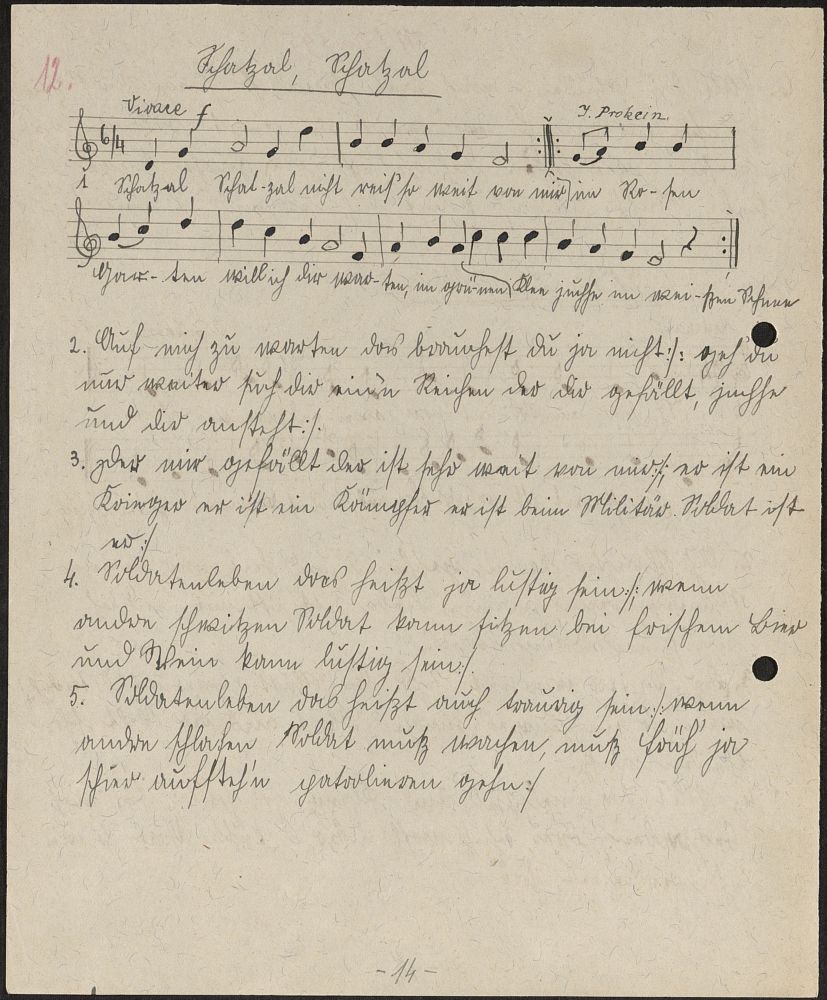 12.
Schatzal, Schatzal
Vivace f
J. Prokein.
6/4
1 Schatzal Schat-zal nicht reis' so weit von mir im Ro-sen
Gar-ten will ich dir war-ten, im grü-nen Klee juchhe im wei-ßen Schnee
2. Auf mich zu warten das brauchest du ja nicht :/: geh' du
nur weiter such dir ein'n Reichen der dir gefällt, juchhe
und dir ansteht :/.
3. Der mir gefällt der ist sehr weit von mir :/: er ist ein
Krieger er ist ein Kämpfer er ist beim Militär. Soldat ist
er :/
4. Soldatenleben das heißt ja lustig sein :/: wenn
andre schwitzen Soldat kann sitzen bei frischem Bier
und Wein kann lustig sein :/
5. Soldatenleben das heißt auch traurig sein :/: wenn
andre schlafen Soldat muß wachen, muß früh' ja
schier aufsteh'n patrolieren gehn :/
-14-